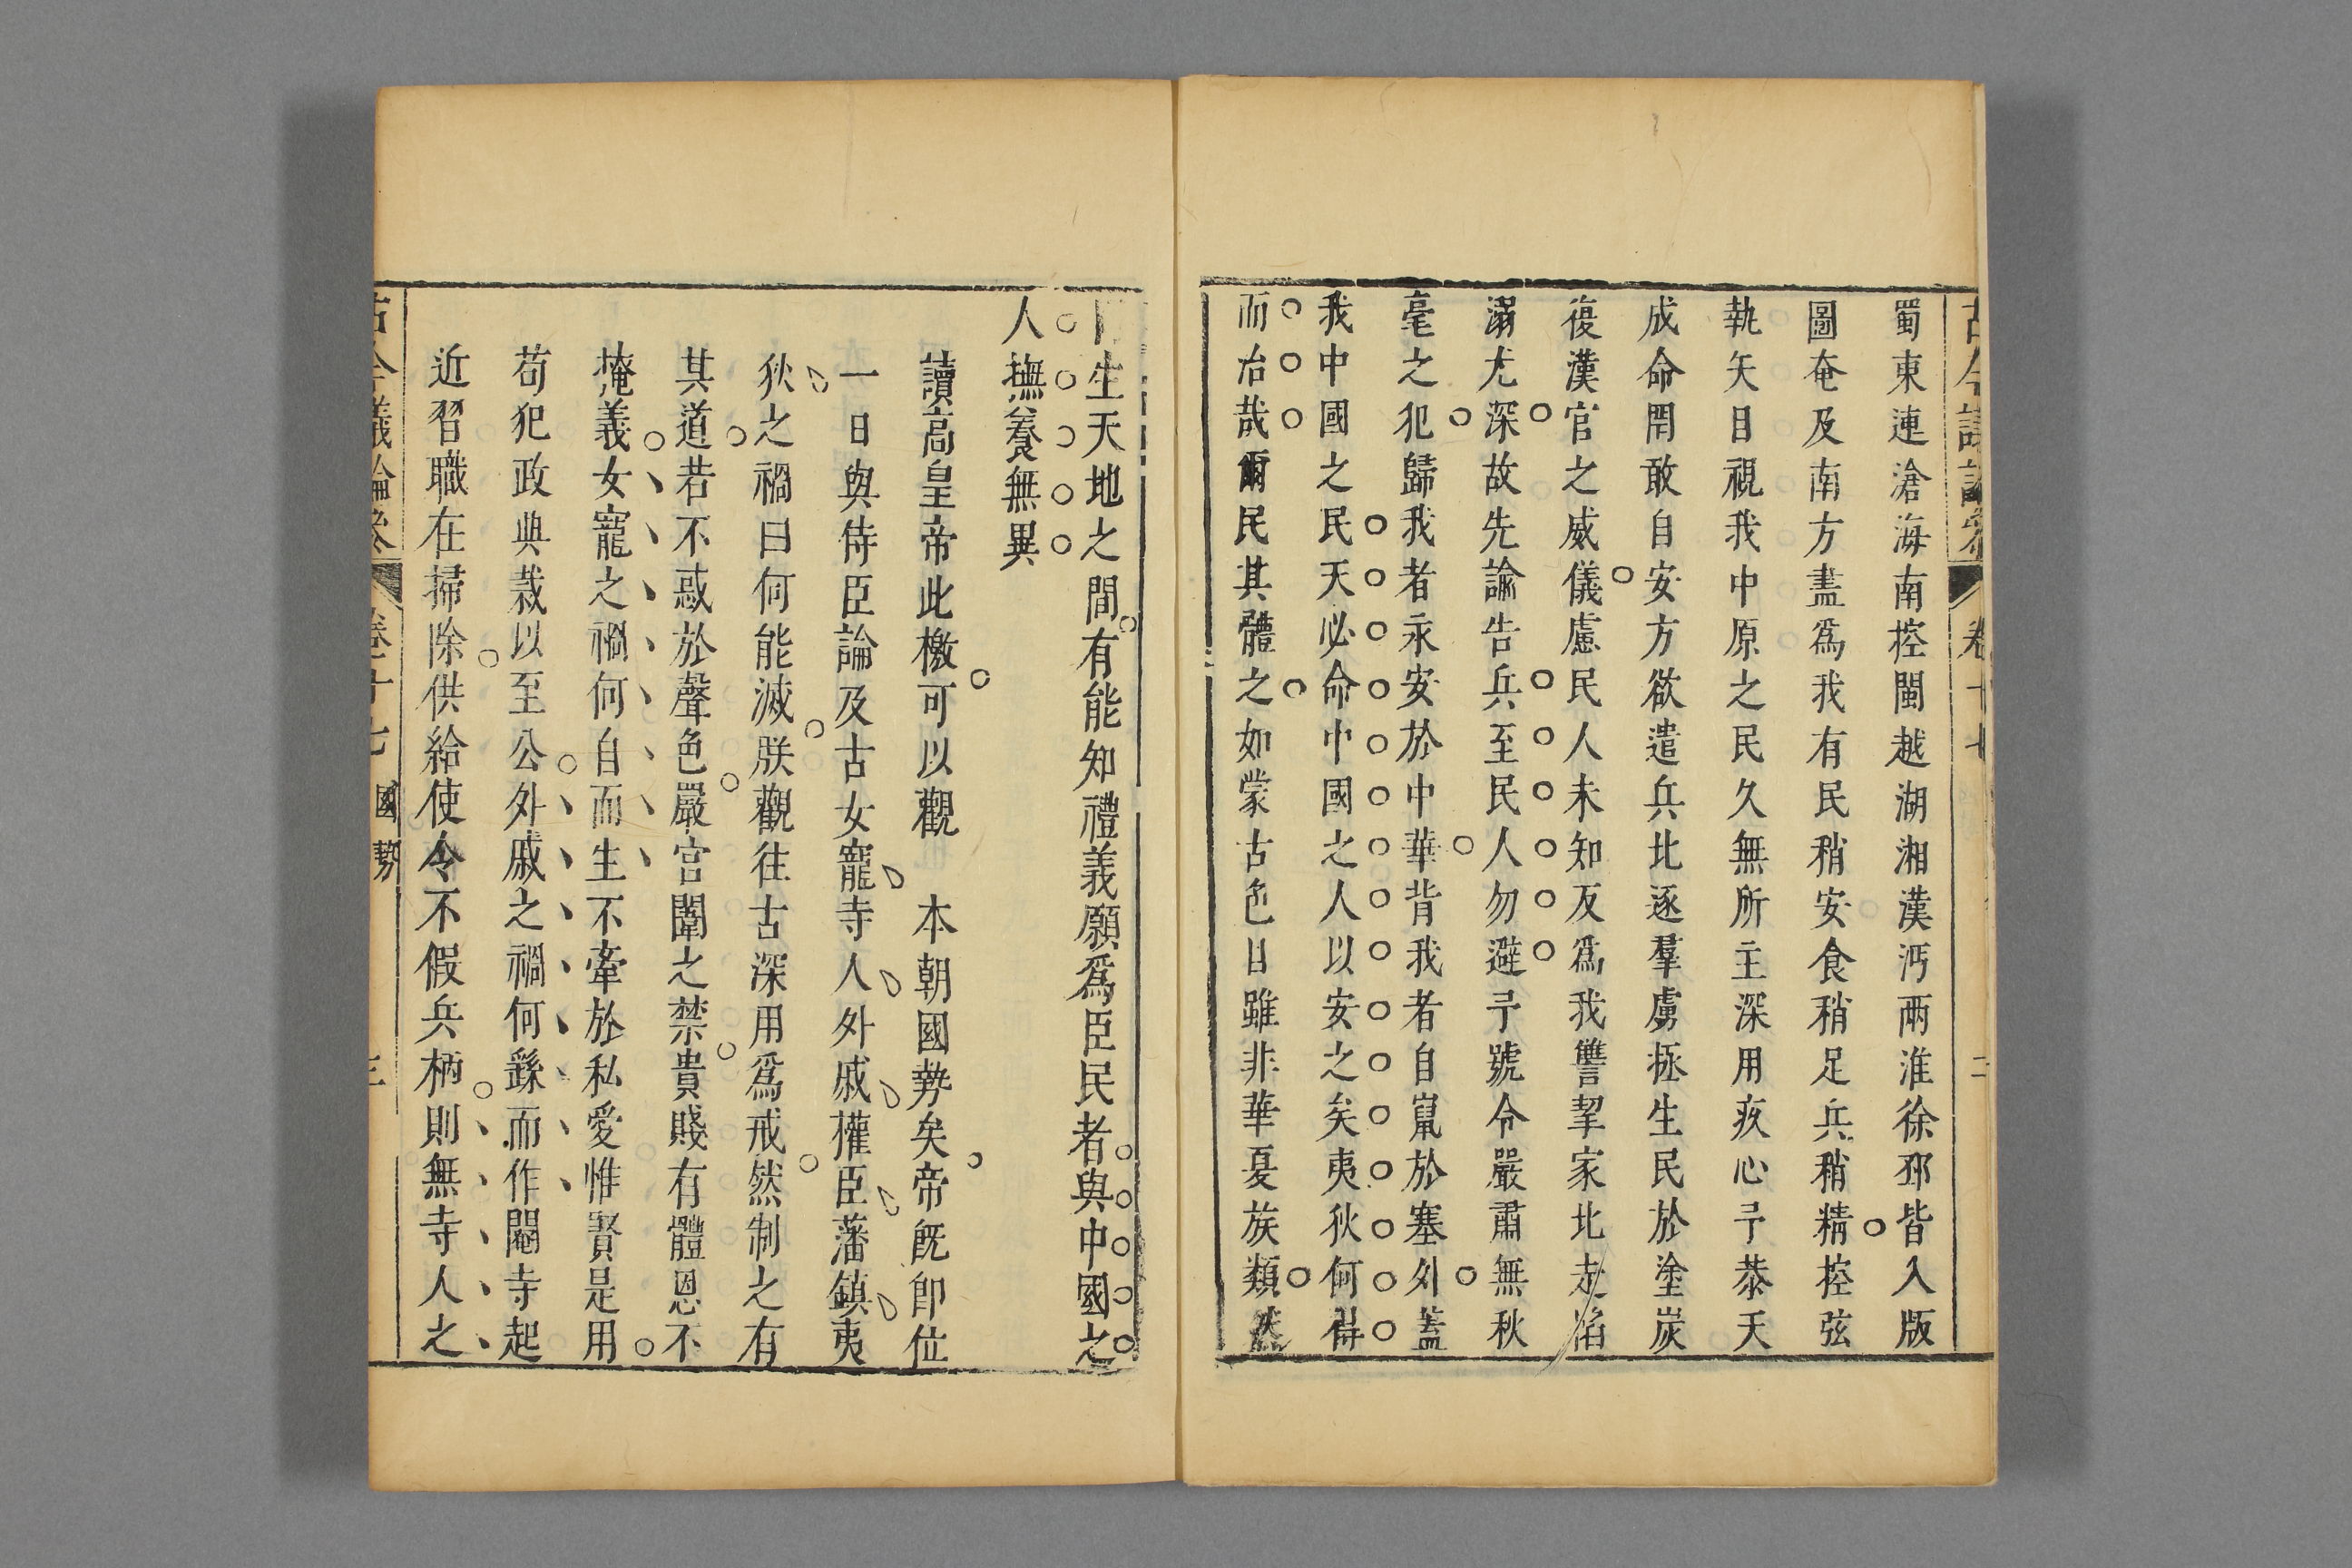 古今議論參
卷十七
二
蜀東連滄海南控閩越湖湘漢沔兩淮徐邳皆入版
圖奄及南方盡爲我有民稍安食稍足兵稍精控弦
執矢目視我中原之民久無所主深用疚心予恭天
成命罔敢自安方欲遣兵北逐羣虜拯生民於塗炭
復漢官之威儀慮民人未知反爲我讐挈家北走陷
溺尤深故先諭告兵至民人勿避予號令嚴肅無秋
毫之犯歸我者永安於中華背我者自竄於塞外蓋
我中國之民天必命中國之人以安之矣夷狄何得
而治哉爾民其體之如蒙古色目雖非華夏族類然
同生天地之間有能知禮義願爲臣民者與中國之
人撫養無異
讀高皇帝此檄可以觀 本朝國勢矣帝既卽位
一日與侍臣論及古女寵寺人外戚權臣藩鎮夷
狄之禍曰何能滅朕觀往古深用爲戒然制之有
其道若不惑於聲色嚴宮闈之禁貴賤有體恩不
掩義女寵之禍何自而生不牽於私愛惟賢是用
苟犯政典裁以至公外戚之禍何繇而作閹寺起
近習職在掃除供給使令不假兵柄則無寺人之
古今議論參
卷十七
國勢
三